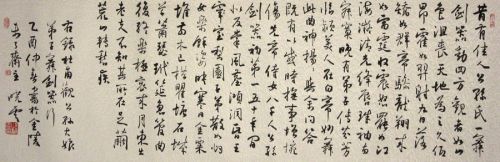 昔有佳人公孫氏一舞
劍器動四方觀者如山
色沮喪天地為之久低
昂㸌如羿射九日落
矯如群帝驂龍翔來如
雷霆收震怒罷如江
海凝清光絳唇珠袖兩
寂寞晚有弟子傳芬芳
臨潁美人在白帝妙舞
此曲神揚揚與余問答
既有以感時撫事增惋
傷先帝侍女八千人公孫
劍器初第一五十年間
似反掌風塵澒洞昏王
室梨園弟子散如煙
女樂餘姿映寒日金粟
堆南木已拱瞿塘石城
草蕭瑟玳筵急管曲
復終樂極哀來月東出
老夫不知其所往足繭
荒山轉愁疾
右錄杜甫觀公孫大娘
弟子舞劍器行
乙酉仲春書於金陵
齋主